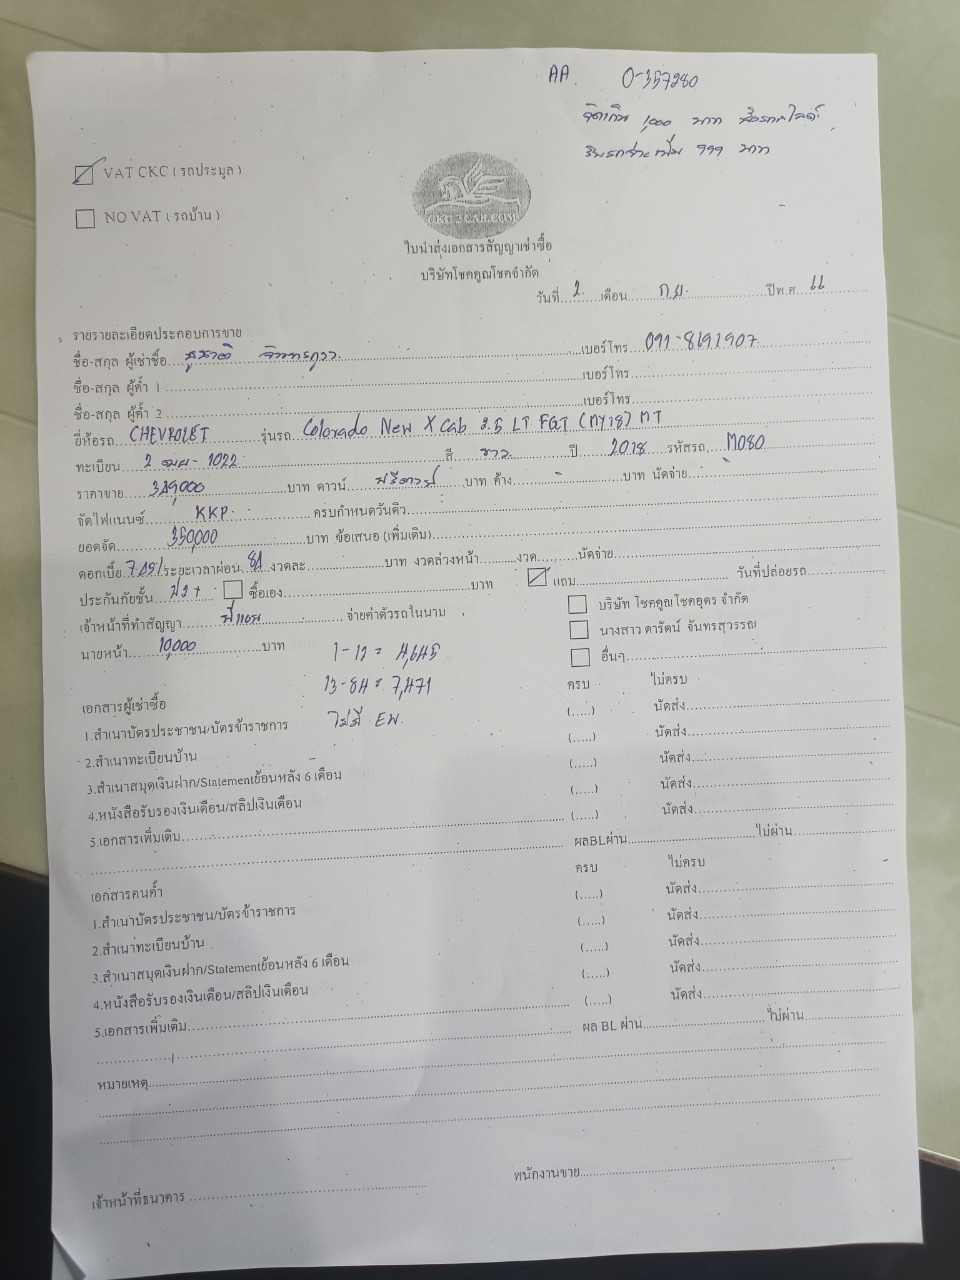 AA 0-357280
จัดเกิน 1,000 บาท
999 บาท
VAT CKC ( รถประมูล )
NO VAT ( รถบ้าน )
CKC 2 CAR.COM
ใบนำส่งเอกสารสัญญาเช่าซื้อ
บริษัทโชคคูณโชคจำกัด
วันที่ 2 เดือน ก.ย. ปีพ.ศ
รายรายละเอียดประกอบการขาย
ชื่อ-สกุล ผู้เช่าซื้อ เบอร์โทร 091-8691907
ชื่อ-สกุล ผู้ค้ำ 1 เบอร์โทร
ชื่อ-สกุล ผู้ค้ำ 2 เบอร์โทร
ยี่ห้อรถ CHEVROLET รุ่นรถ Colorado New X Cab 2.5 LT FGT (MY18) MT
ทะเบียน 2 1022 สี ขาว ปี 2018 รหัสรถ M080
ราคาขาย 349,000 บาท ดาวน์ ฟรีดาวน์ บาท ค้าง บาท นัดจ่าย
จัดไฟแนนซ์ KKP ครบกำหนดวันคิว
ยอดจัด 350,000 บาท ข้อเสนอ (เพิ่มเติม)
ดอกเบี้ย ระยะเวลาผ่อน 84 งวดละ บาท งวดล่วงหน้า งวด นัดจ่าย
ประกันภัยชั้น ป2+ ซื้อเอง บาท แถม วันที่ปล่อยรถ
เจ้าหน้าที่ทำสัญญา จ่ายค่าตัวรถในนาม บริษัท โชคคูณโชคอุดร จำกัด
นายหน้า 10,000 บาท นางสาว ดารัตน์ จันทรสุวรรณ
1-12 = 4,645 อื่นๆ
13-84 = 7,471
ไม่มี EW.
เอกสารผู้เช่าซื้อ ครบ ไม่ครบ
1.สำเนาบัตรประชาชน/บัตรข้าราชการ (.....) นัดส่ง
2.สำเนาทะเบียนบ้าน (.....) นัดส่ง
3.สำเนาสมุดเงินฝาก/Statementย้อนหลัง 6 เดือน (.....) นัดส่ง
4.หนังสือรับรองเงินเดือน/สลิปเงินเดือน (.....) นัดส่ง
5.เอกสารเพิ่มเติม (.....) นัดส่ง
ผลBLผ่าน ไม่ผ่าน
เอกสารคนค้ำ ครบ ไม่ครบ
1.สำเนาบัตรประชาชน/บัตรข้าราชการ (.....) นัดส่ง
2.สำเนาทะเบียนบ้าน (.....) นัดส่ง
3.สำเนาสมุดเงินฝาก/Statementย้อนหลัง 6 เดือน (.....) นัดส่ง
4.หนังสือรับรองเงินเดือน/สลิปเงินเดือน (.....) นัดส่ง
5.เอกสารเพิ่มเติม (.....) นัดส่ง
ผล BL ผ่าน ไม่ผ่าน
หมายเหตุ
เจ้าหน้าที่ธนาคาร พนักงานขาย